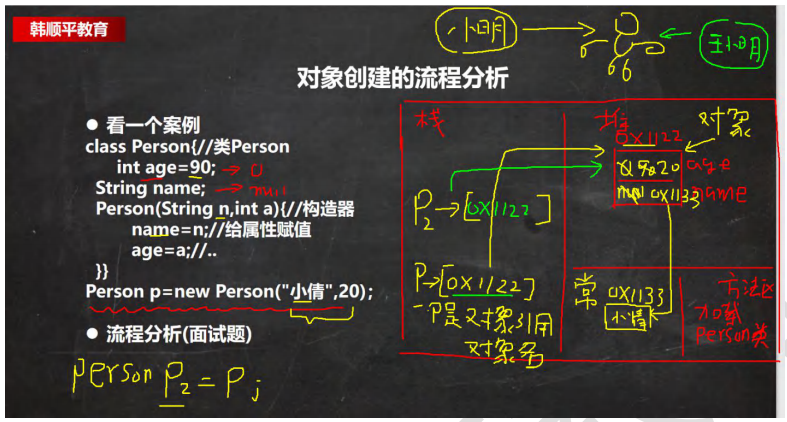 韩顺平教育
小明
王小明
对象创建的流程分析
● 看一个案例
class Person{//类Person
int age=90; → 0
String name; → null
Person(String n,int a){//构造器
name=n;//给属性赋值
age=a;//..
}}
Person p=new Person("小倩",20);
● 流程分析(面试题)
person P2 = P;
栈
堆
对象
0X1122
20 age
null 0X1133 name
P2→[0X1122]
P→[0X1122]
P是对象引用
对象名
常
0X1133
小倩
方法区
加载
Person类